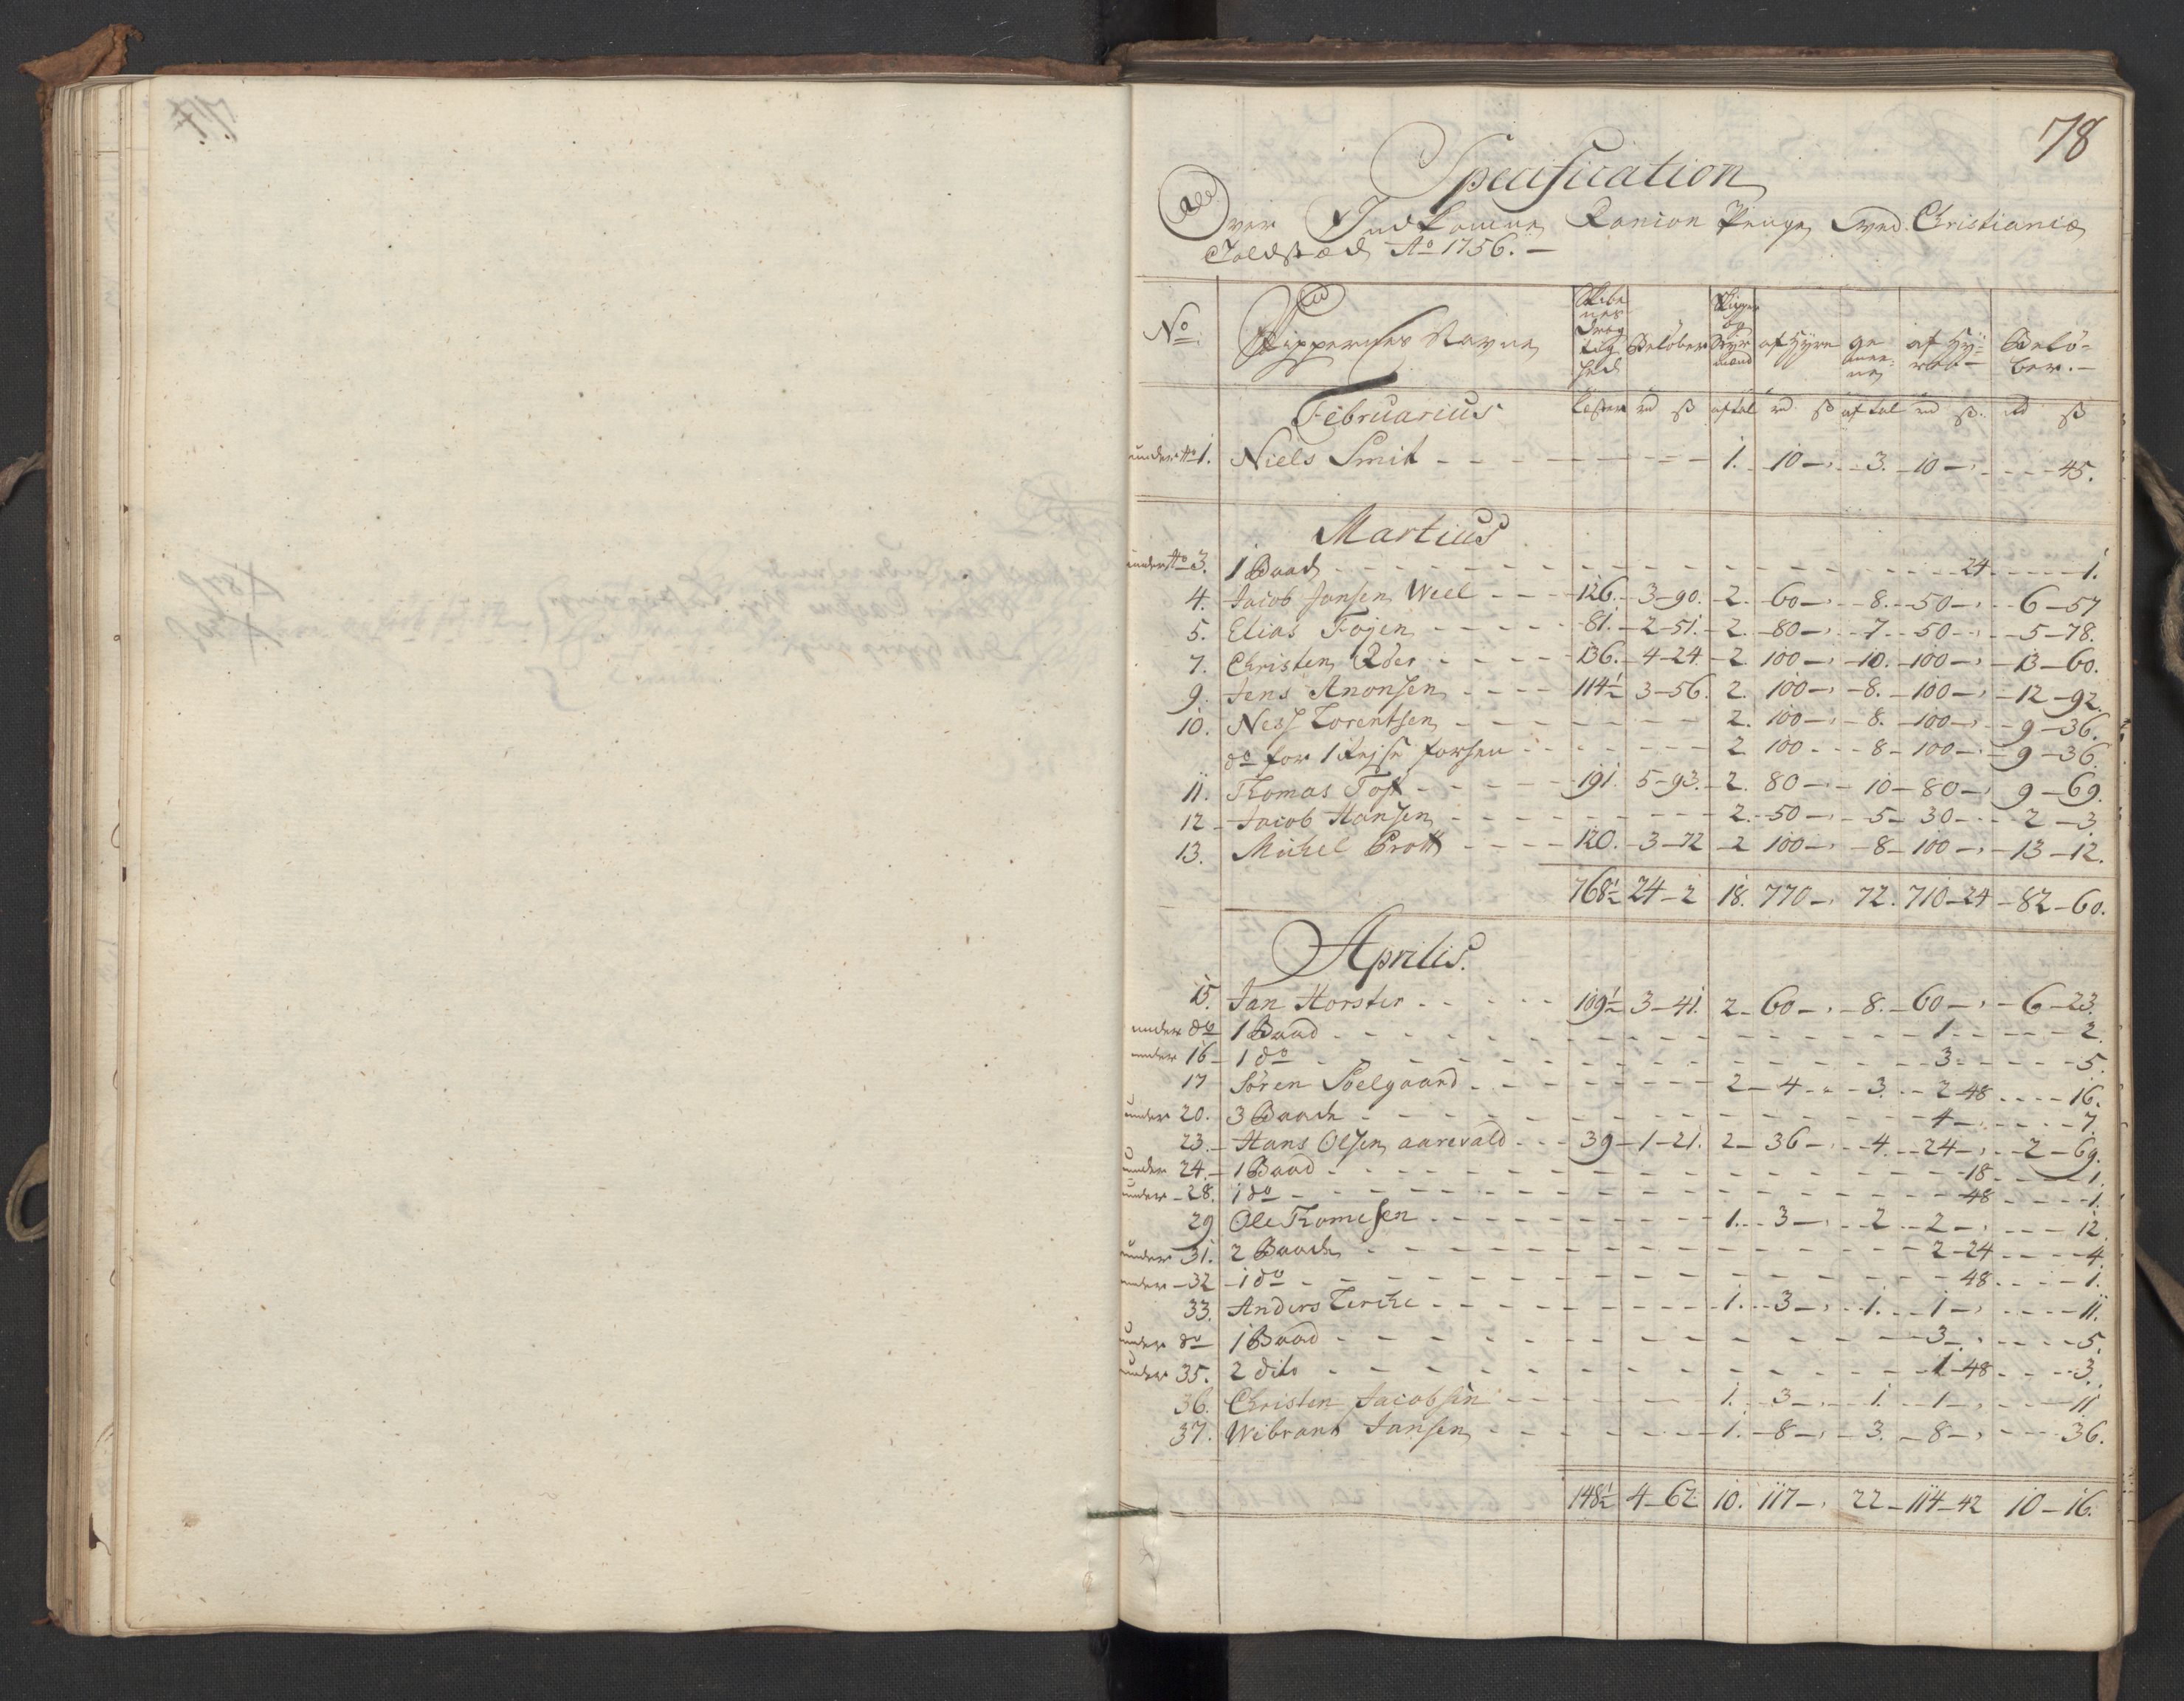 78
Specification
over Indkomne Rancion Penge ved Christiania
Toldsted Ao 1756. –
No. Skippernes Navne Skibenes Drægtighed Beløber Skipper og Styrmænd af Hyre gemeene af Hyren Beløber. –
Februarius Læster rd ß aftal rd ß aftal rd ß rd ß
under No 1. Niels Smit - - - 1. 10 – 3. 10 – - - 45.
Martius
under No 3. 1 Baad - - - 24 - - 1.
4. Jacob Jansen Weel - - 126. 3-90. 2. 60 – 8. 50 – 6-57
5. Elias Fojen - - 81. 2-51. 2. 80 – 7. 50 – 5-78.
7. Christen Røer - - 136. 4-24. 2 100 – 10. 100 – 13-60.
9. Jens Anonsen - - 114½ 3-56. 2. 100 – 8. 100 – 12-92.
10. Ness Lorentsen - - 2. 100 – 8. 100 – 9-36.
do for 1 Rejse forhen - - 2 100 - 8 - 100 – 9-36.
11. Thomas Toft - - 191. 5-93. 2. 80 – 10 - 80 – 9-69.
12 Jacob Hansen - - 2. 50 – 5 - 30 - - 2-3
13. Michel Brott - - 120. 3-72 2 100 – 8 - 100 – 13-12.
768½ 24-2 18. 770 – 72. 710-24 82-60.
Aprilis.
15. Jan Horster - - 109½ 3-41. 2 60 – 8. 60 – 6-23.
under do 1 Baad - - - 1 - - 2.
under 16 1 do - - - 3 - - 5.
17 Sören Soelgaard - - 2 4 - 3. 2-48 - - 16.
under 20. 3 Baade - - - 4 – - - 7.
23. Hans Olsen aarevald - - 39 1-21. 2 36 – 4. 24 – 2-69.
under 24. 1 Baad - - - 18 - - 1.
under 28. 1 do - - - 48 - - 1.
29 Ole Thomesen - - 1. 3 – 2 2 – - - 12
under 31. 2 Baade - - - 2-24 - - 4
under 32 1 do - - - 48 - - 1.
33. Anders Lerche - - 1. 3 – 1. 1 – - - 11.
under do 1 Baad - - - 3 – - - 5.
under 35. 2 dito - - - 1-48 - - 3.
36. Christen Jacobsen - - 1. 3 – 1. 1 – - - 11
37. Wibrant Jansen - - 1. 8 – 3. 8 – - - 36.
148½ 4-62 10. 117 – 22 - 114-42 10-16.